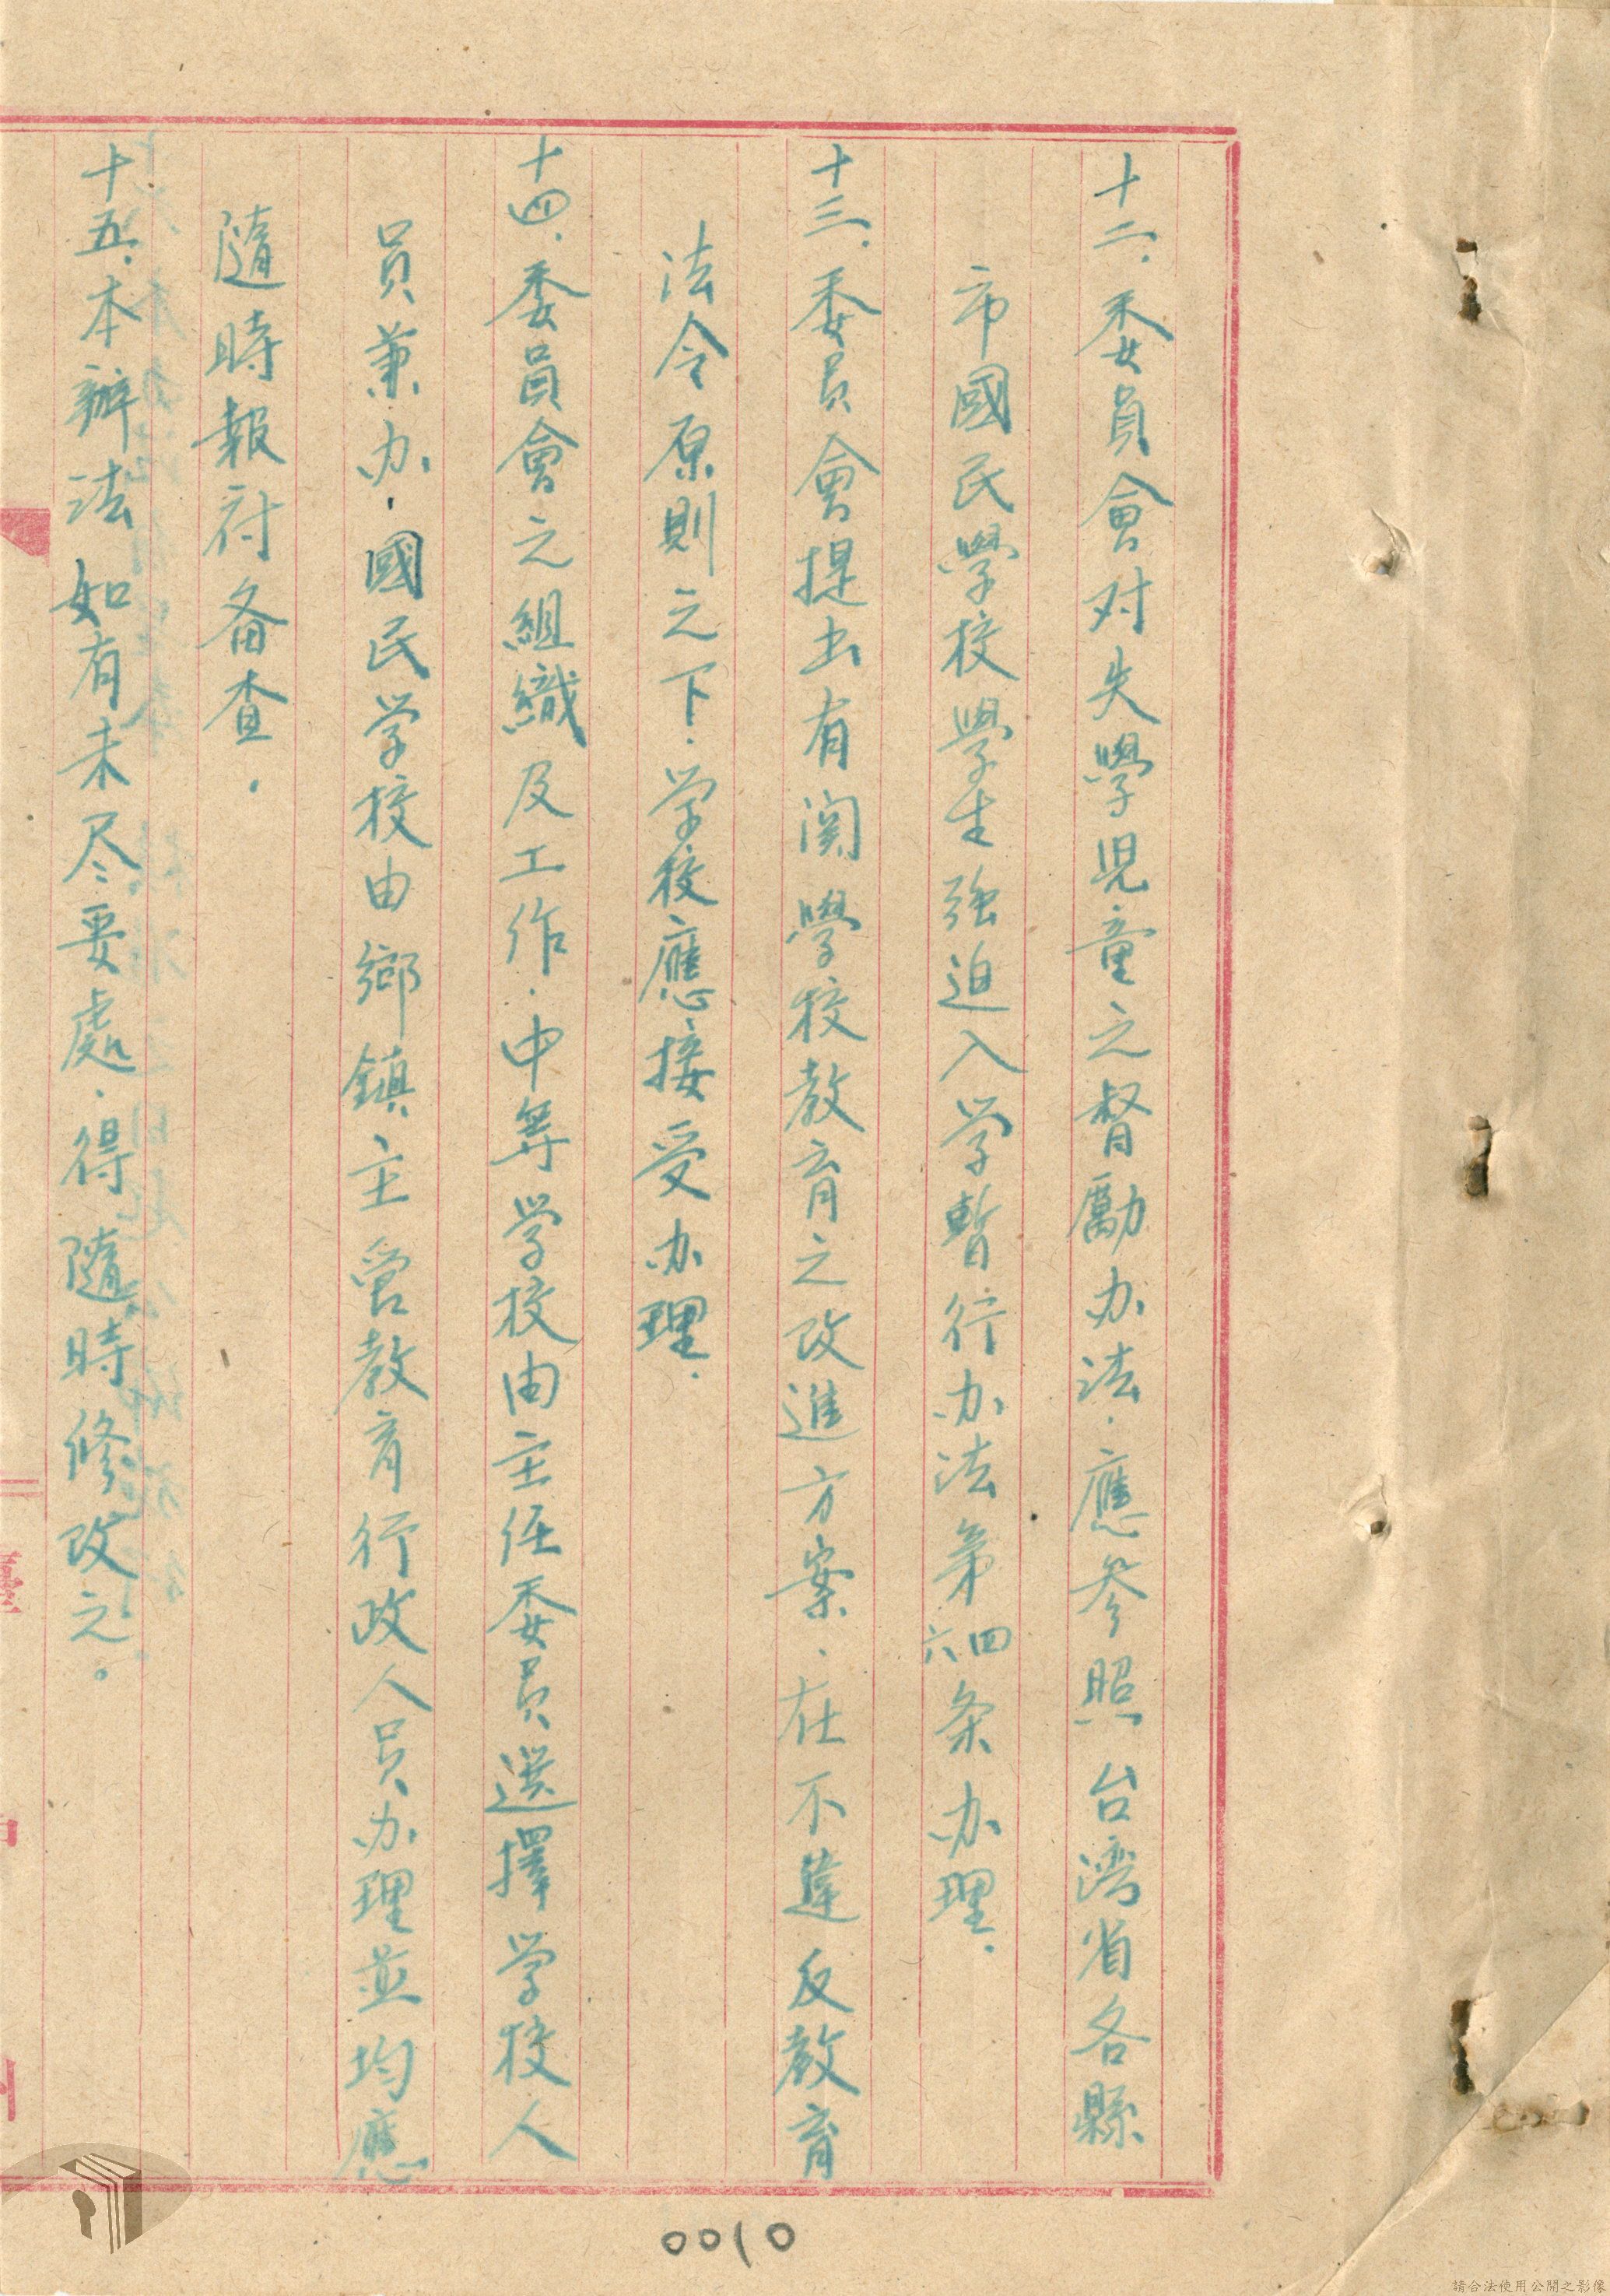 十二.委員會对失學児童之督勵办法.應参照台湾省各縣
市國民學校學生強迫入学暫行办法第四六条办理.
十三.委員會提出有関學校教育之改進方案.在不違反教育
法令原則之下.学校應接受办理.
十四.委員會之組織及工作.中等学校由主任委員選擇学校人
員兼办.國民学校由鄉鎮主管教育行政人員办理並均應
隨時報府备查.
十五.本辦法如有未尽要處.得隨時修改之。
0010
請合法使用公開之影像